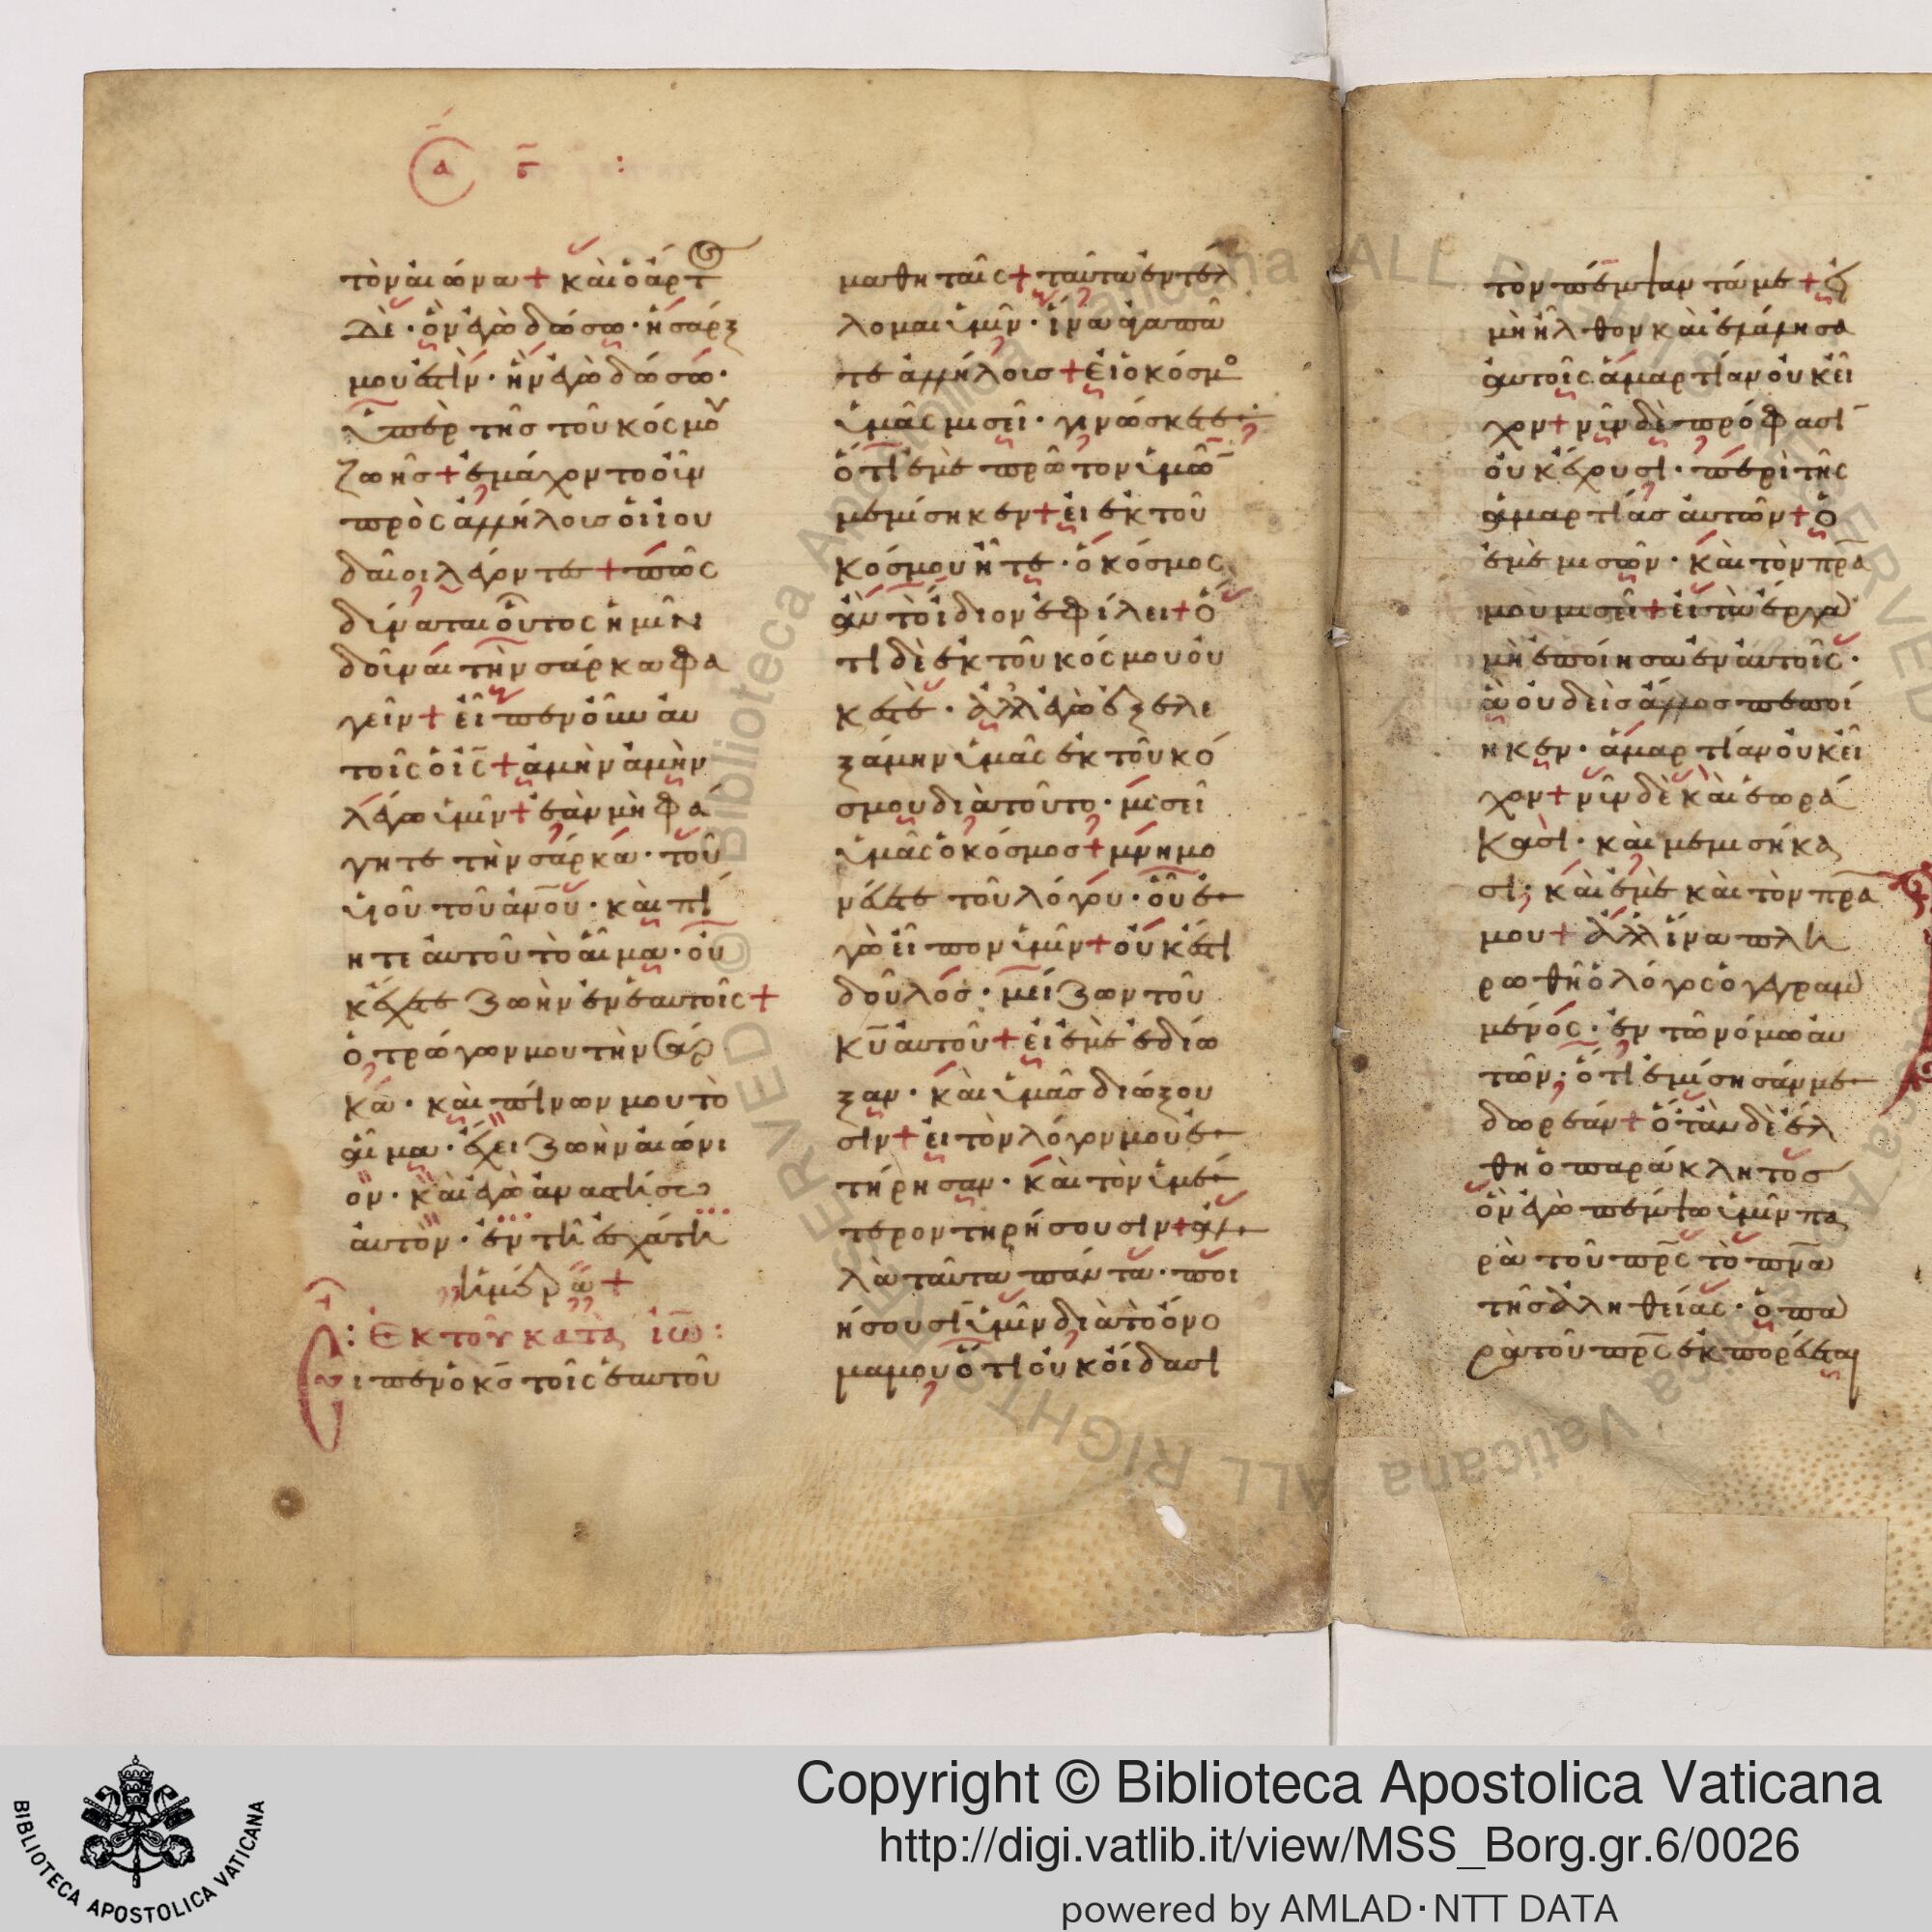 α β :
τὸν αἰῶνα + καὶ ὁ ἄρτ
δὲ · ὃν ἐγὼ δώσω · ἡ σάρξ
μου ἐστὶν · ἣν ἐγὼ δώσω ·
ὑπὲρ τῆς τοῦ κόσμου
ζωῆς + ἐμάχοντο οὖν
πρὸς ἀλλήλοισ οἱ ἰου
δαῖοι λέγοντες + πῶς
δύναται οὗτος ἡμῖν
δοῦναι τὴν σάρκα φα
γεῖν + εἶπεν οὖν αὐ
τοῖς ὁ ἰς̅ + ἀμὴν ἀμὴν
λέγω ὑμῖν + ἐὰν μὴ φά
γητε τὴν σάρκα · τοῦ
υἱοῦ τοῦ ἀν̅ου · καὶ πί
ητε αὐτοῦ τὸ αἷμα · οὐ
κ ἔχετε ζωὴν ἐν ἑαυτοῖς +
ὁ τρώγων μου τὴν σάρ
κα · καὶ πίνων μου τὸ
αἷμα · ἔχει ζωὴν αἰώνι
ον · καὶ ἐγὼ ἀναστήσω
αὐτὸν · ἐν τῆ ἐσχάτη
ἡμέρα +
: Ἐκ τοῦ κατὰ ἰω̅ :
Εἶπεν ὁ κς̅ τοῖς ἑαυτοῦ
μαθηταῖς + ταῦτα ἐντέλ
λομαι ὑμῖν · ἵνα ἀγαπᾶ
τε ἀλλήλοισ + εἰ ὁ κόσμο
ὑμᾶς μισεῖ · γινώσκετε ·
ὅτι ἐμὲ πρῶτον ὑμῶ̅
μεμίσηκεν + εἰ ἐκ τοῦ
κόσμου ἦτε · ὁ κόσμος
ἂν τὸ ἴδιον ἐφίλει + ὅ
τι δὲ ἐκ τοῦ κόσμου οὐ
κ ἐστὲ · ἀλλ ἐγὼ ἐξελε
ξάμην ὑμᾶς ἐκ τοῦ κό
σμου διὰ τοῦτο · μισεῖ
ὑμᾶς ὁ κόσμοσ + μνημο
νεύετε τοῦ λόγου · οὗ ἐ
γὼ εἶπον ὑμῖν + οὐκ ἔστι
δοῦλος · μείζων τοῦ
κυ̅ αὐτοῦ + εἰ ἐμὲ ἐδίω
ξαν · καὶ ὑμᾶς διώξου
σιν + εἰ τὸν λόγον μου ἐ
τήρησαν · καὶ τὸν ὑμέ
τερον τηρήσουσιν + ἀλ
λὰ ταῦτα πάντα · ποι
ήσουσῑ ὑμῖν διὰ τὸ ὄνο
μα μου ὅτι οὐκ οἴδασι
τὸν πέμψαντά με + εἰ
μὴ ἦλθον καὶ ἐλάλησα
αὐτοῖς ἁμαρτίαν οὐκ εἶ
χον + νῦν δὲ πρόφασῑ
οὐκ ἔχουσι · περὶ τῆς
ἁμαρτίας αὐτῶν + ὁ
ἐμὲ μισῶν · καὶ τὸν πρ̅α
μου μισεῖ + εἰ τὰ ἔργα
μὴ ἐποίησα ἐν αὐτοῖς ·
ἃ οὐδεὶς ἄλλος πεποί
ηκεν · ἁμαρτίαν οὐκ εἶ
χον + νῦν δὲ καὶ ἑωρά
κασι · καὶ μεμισήκα
σι · καὶ ἐμὲ καὶ τὸν πρ̅α
μου + ἀλλ ἵνα πλη
ρωθῆ ὁ λόγος ὁ γεγραμ
μένος · ἐν τῶ νόμω αὐ
τῶν · ὅτι ἐμίσησάν με
δωρεάν + ὅταν δὲ ἔλ
θη ὁ παράκλητος
ὃν ἐγὼ πέμψω ὑμῖν πα
ρὰ τοῦ πρ̅ς τὸ πν̅α
τῆς ἀληθείας · ὃ πα
ρὰ τοῦ πρ̅ς ἐκπορεύεται
BIBLIOTECA APOSTOLICA VATICANA
Copyright © Biblioteca Apostolica Vaticana
http://digi.vatlib.it/view/MSS_Borg.gr.6/0026
powered by AMLAD·NTT DATA